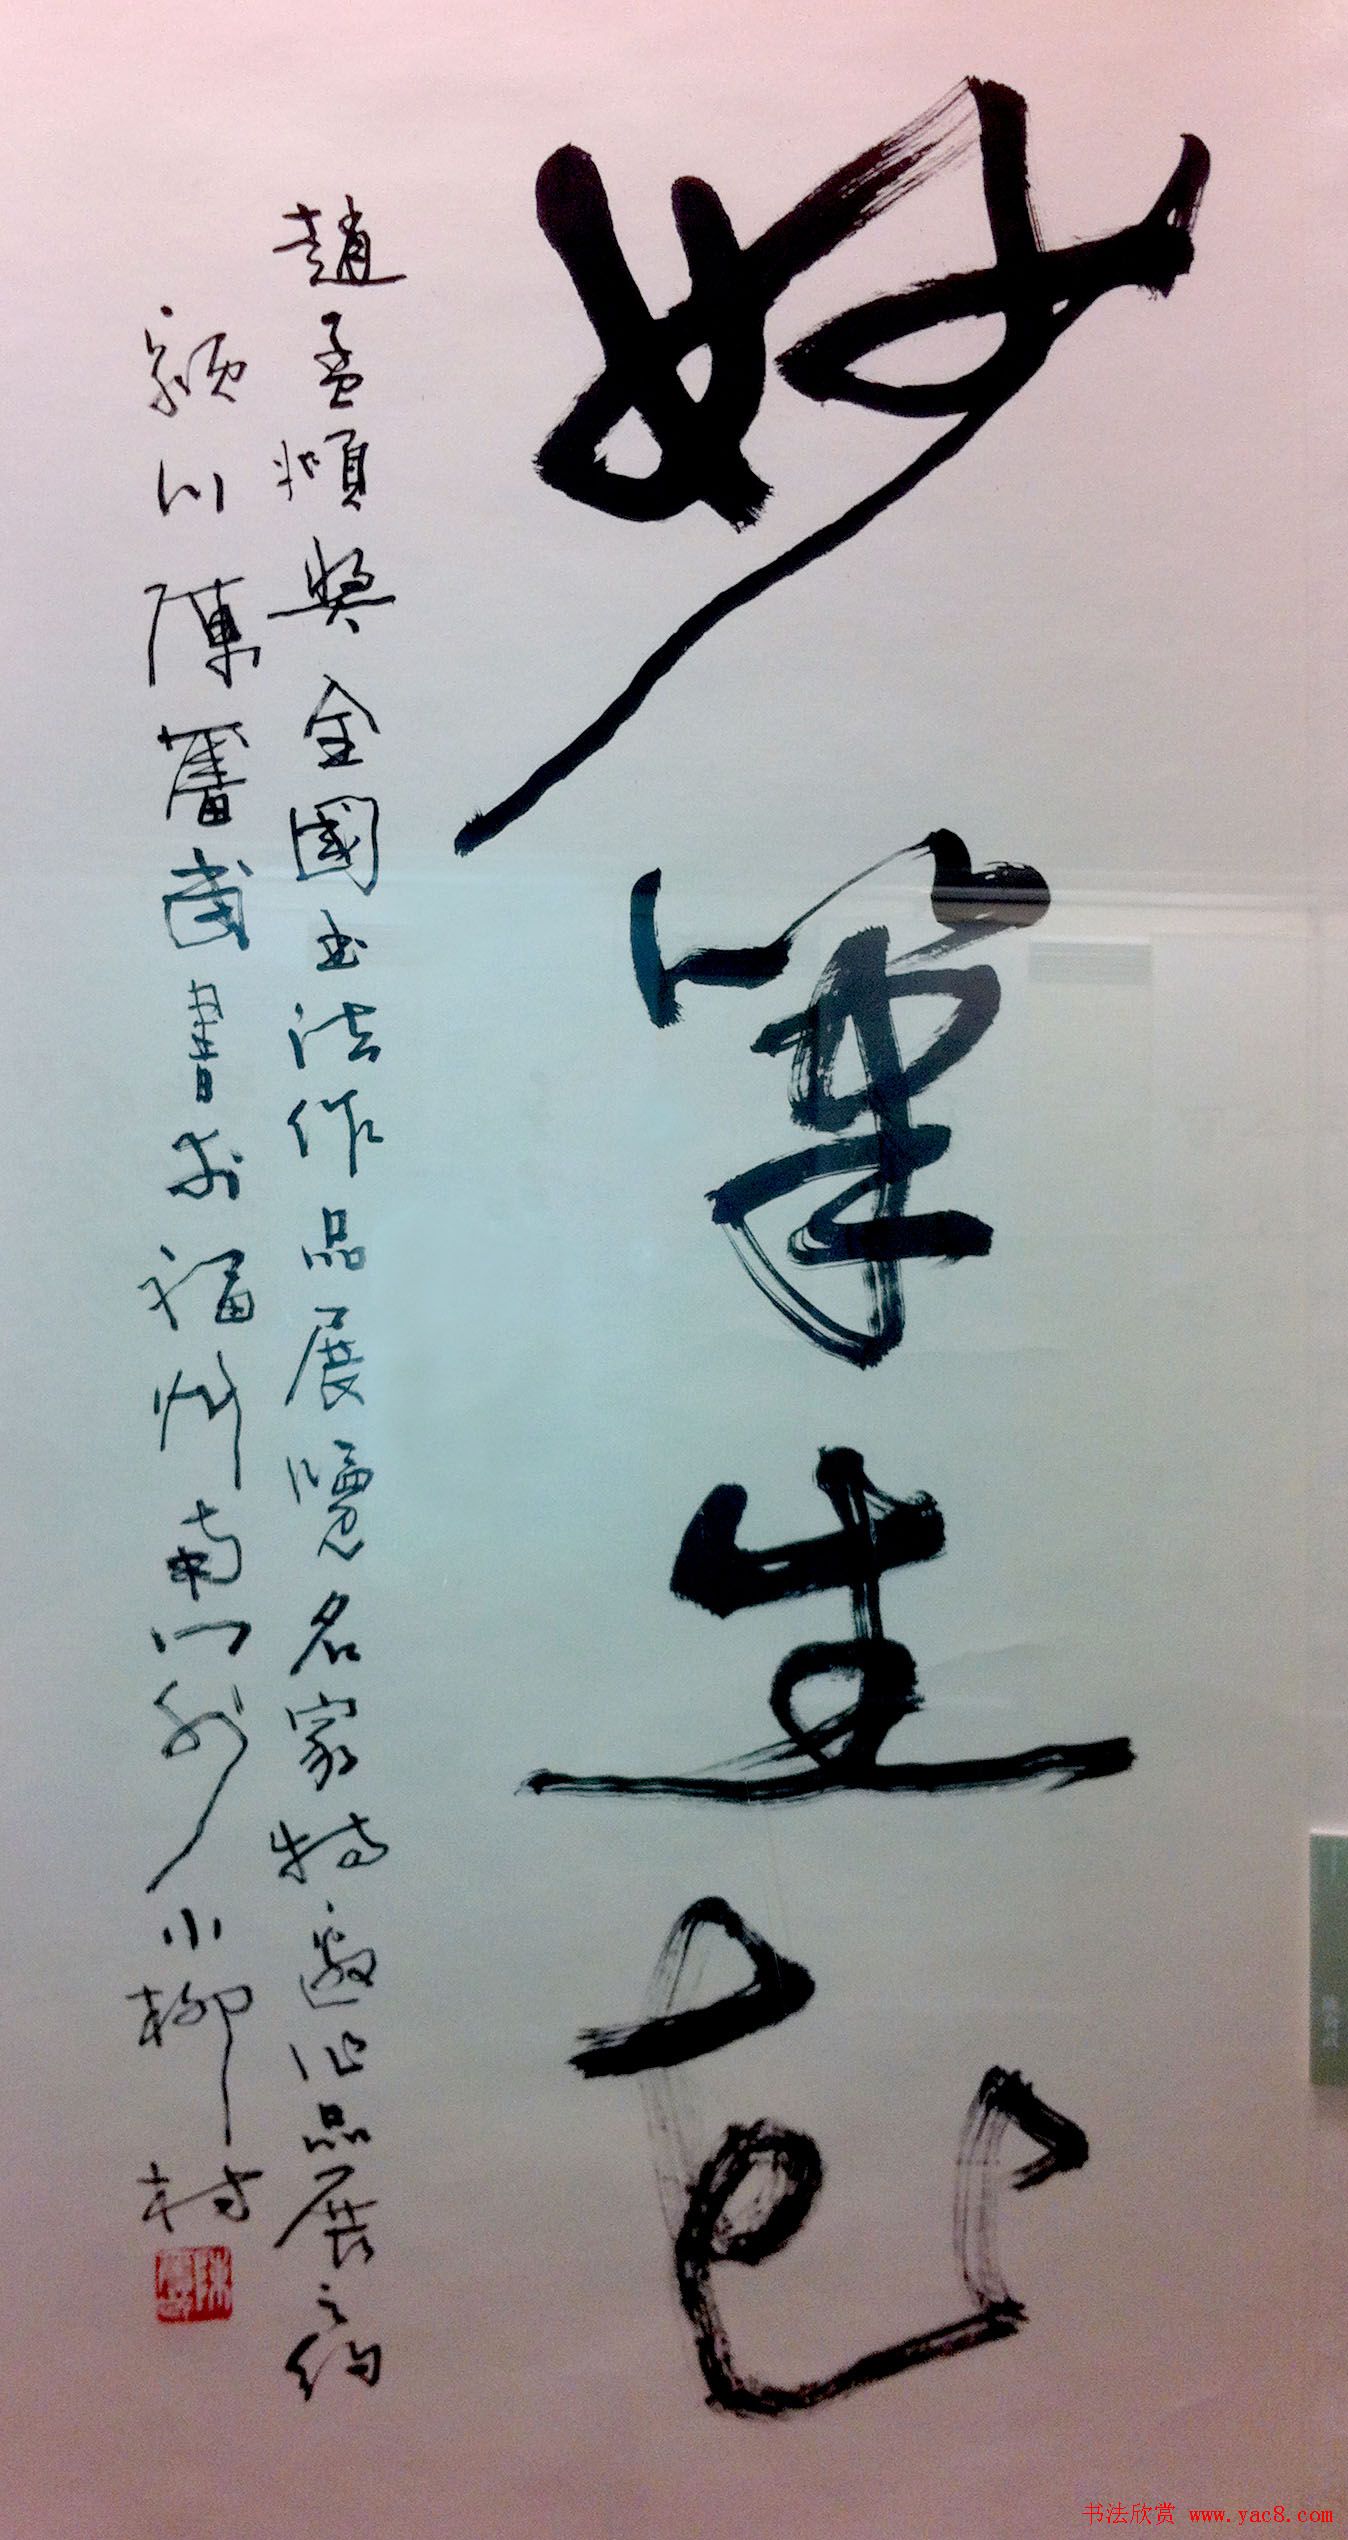 妙筆生色
趙孟頫獎全國书法作品展覽名家特邀作品展之約
潁川陳奮武書於福州南门外小柳村
书法欣赏 www.yac8.com